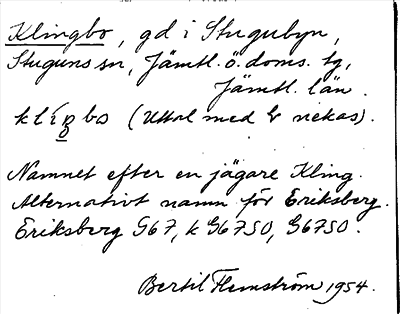 Klingbo, gd i Stugubyn,
Stuguns sn, Jämtl. ö. doms. tg,
Jämtl. län.
klíŋbo (Uttal med bo nekas).
Namnet efter en jägare Kling.
Alternativt namn för Eriksberg.
Eriksberg G67, k G6750, G6750.
Bertil Flemström 1954.